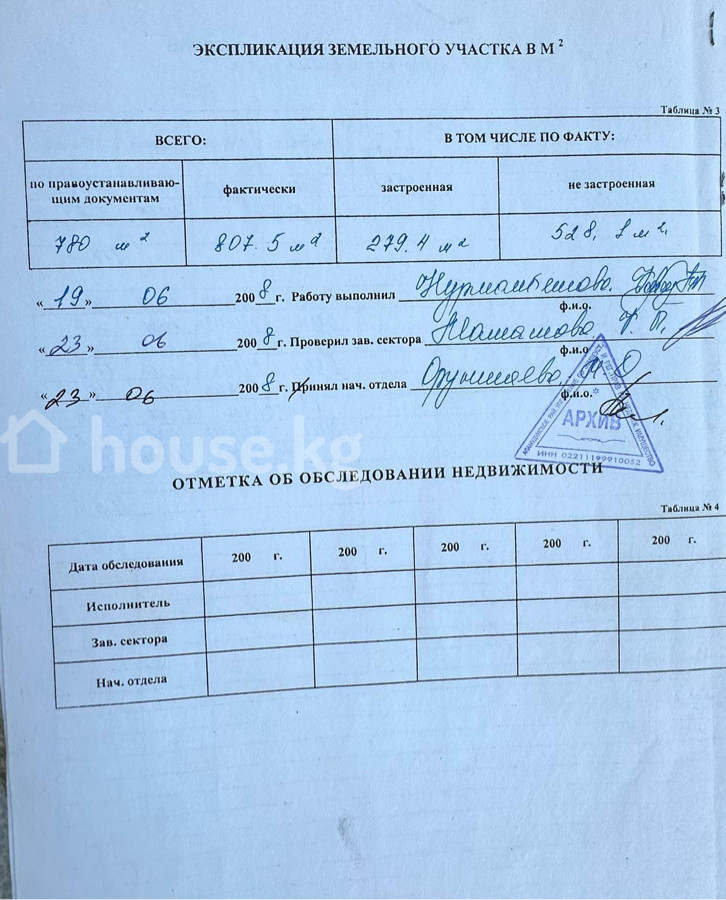 ЭКСПЛИКАЦИЯ ЗЕМЕЛЬНОГО УЧАСТКА В М²
Таблица № 3
ВСЕГО: В ТОМ ЧИСЛЕ ПО ФАКТУ:
по правоустанавливаю-
щим документам фактически застроенная не застроенная
780 м² 807.5 м² 279.4 м² 528,1 м².
«19» 06 2008г. Работу выполнил
ф.и.о.
«23» 06 2008г. Проверил зав. сектора
ф.и.о
«23» 06 2008г. Принял нач. отдела
ф.и.о.
АРХИВ
ИНН 02211199910052
house.kg
ОТМЕТКА ОБ ОБСЛЕДОВАНИИ НЕДВИЖИМОСТИ
Таблица № 4
Дата обследования 200 г. 200 г. 200 г. 200 г. 200 г.
Исполнитель
Зав. сектора
Нач. отдела